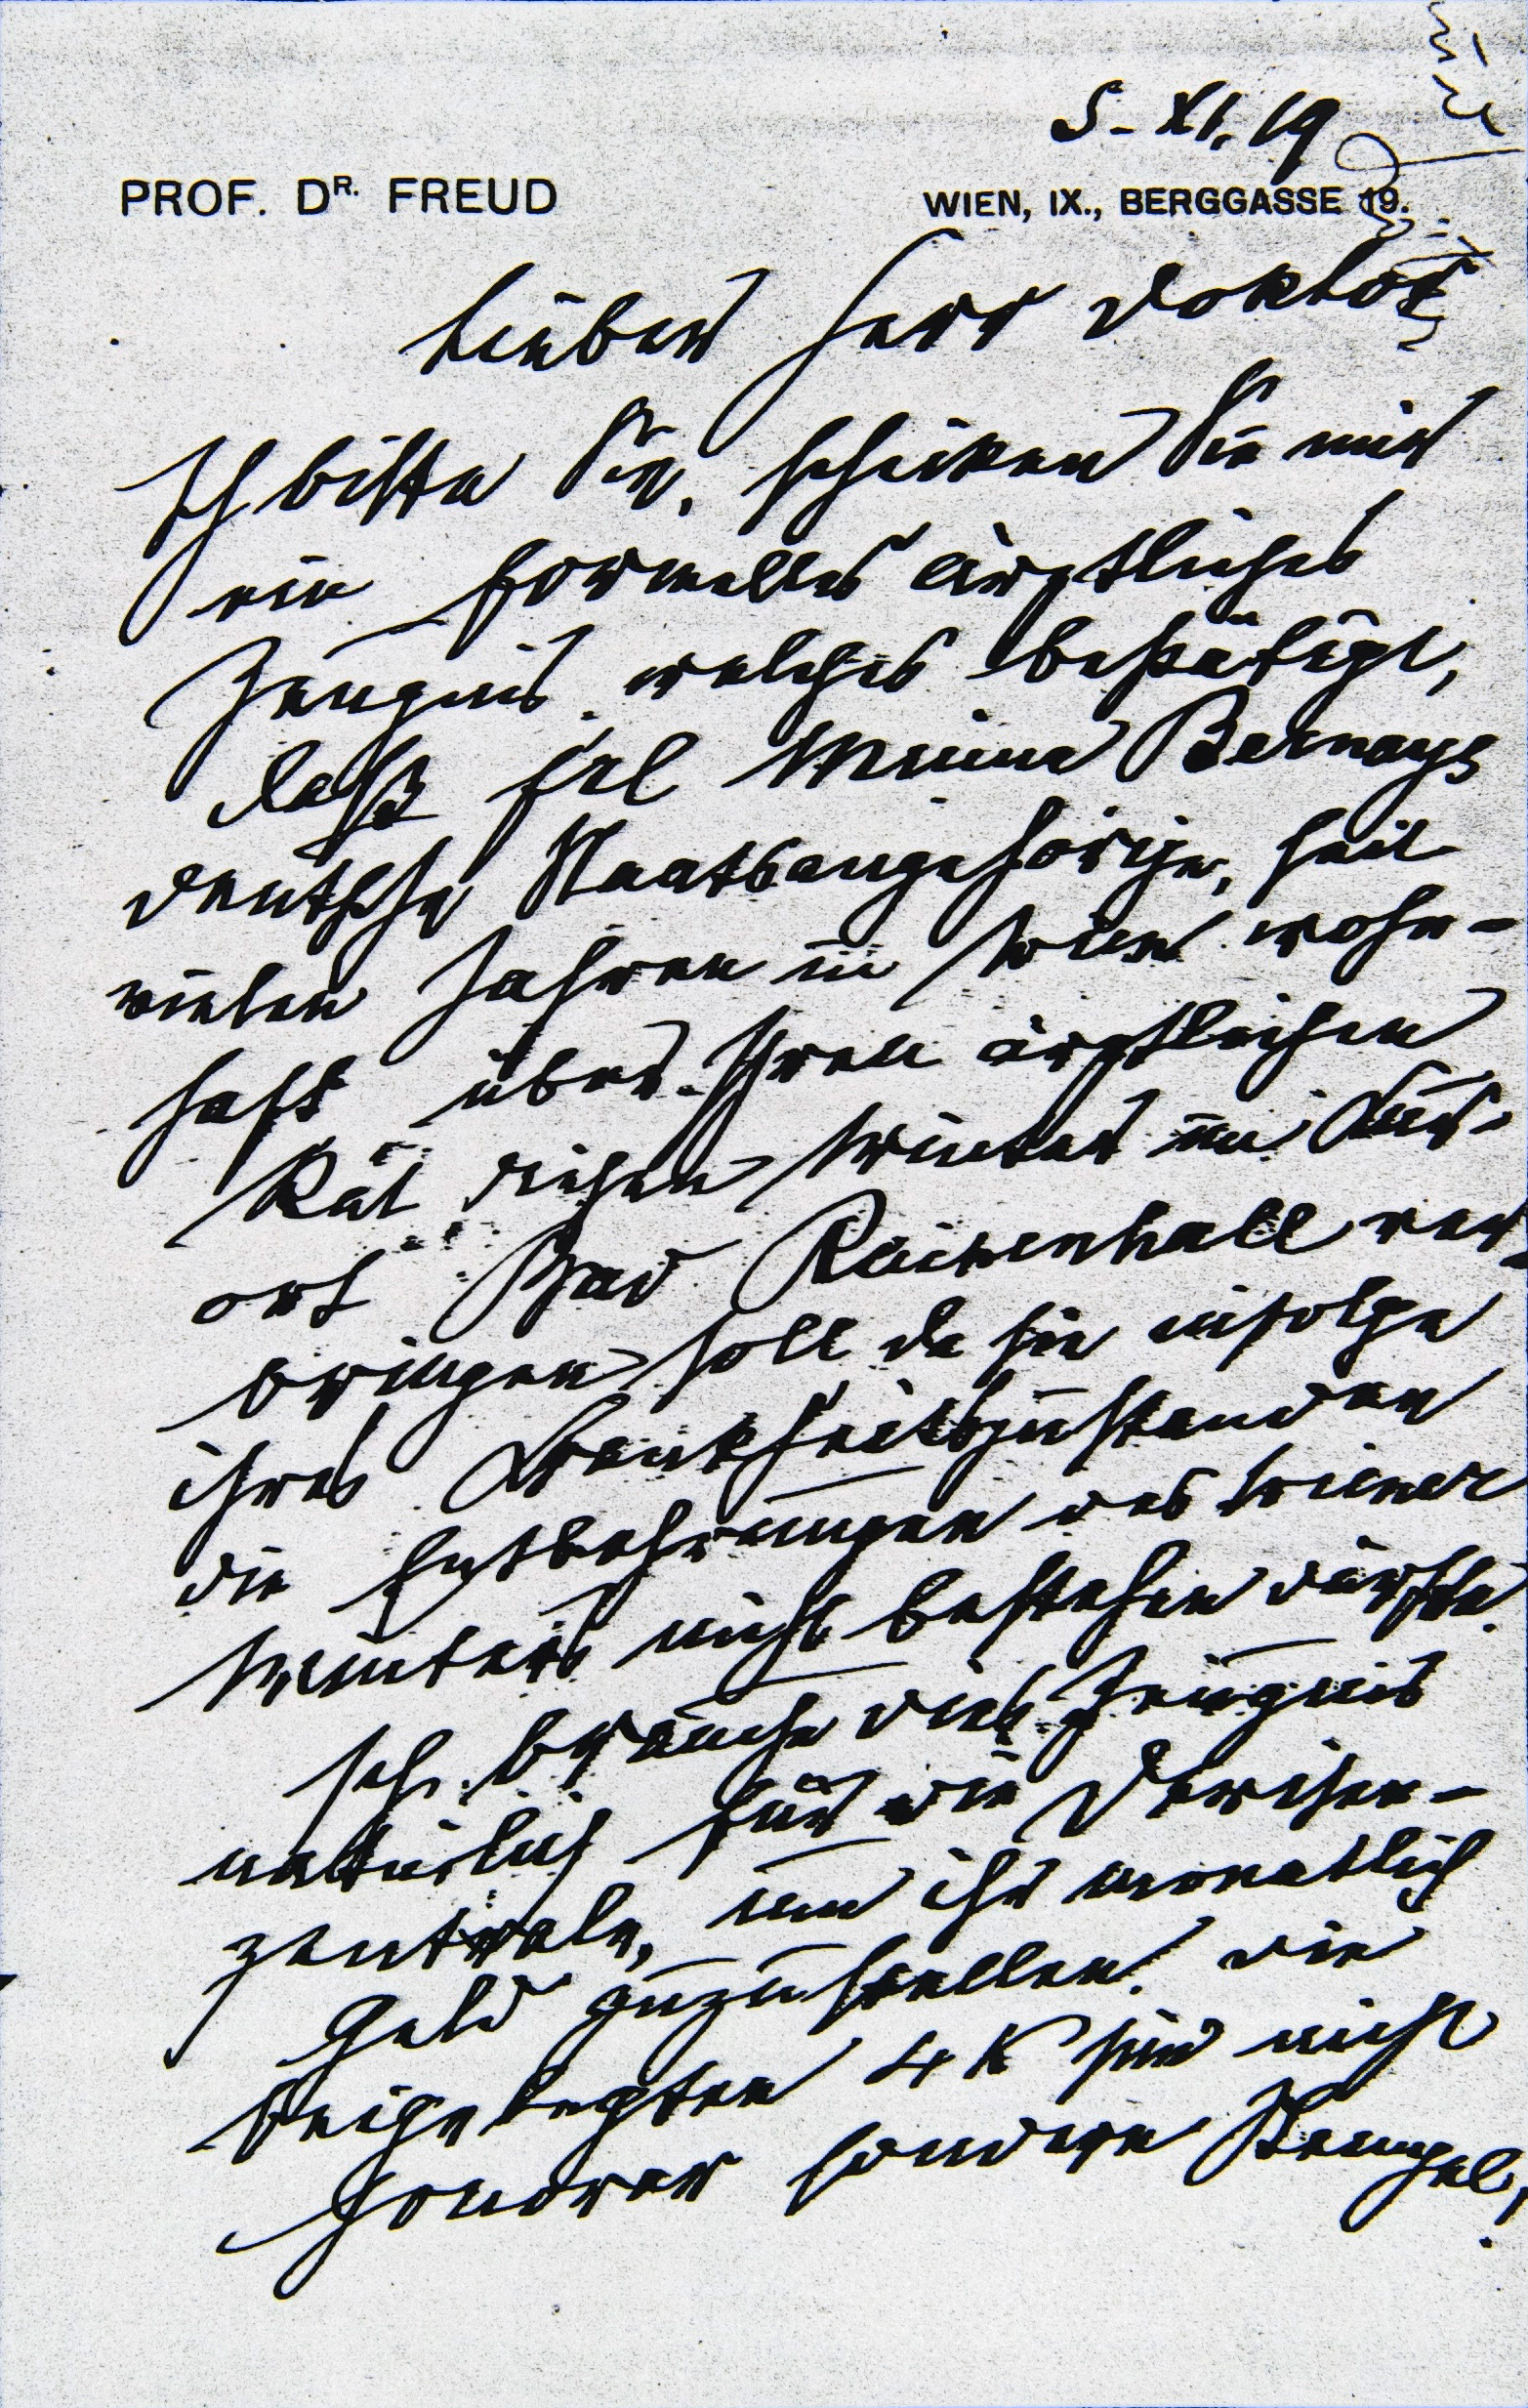 5. XI. 19
PROF. DR. FREUD WIEN, IX., BERGGASSE 19.
Lieber Herr Doktor
Ich bitte Sie, schicken Sie mir
ein formelles ärztliches
Zeugnis welches bestätigt,
daß Frl Minna Bernays
deutsche Staatsangehörige, seit
vielen Jahren in Wien wohn-
haft über Ihren ärztlichen
Rat diesen Winter im Kur-
ort Bad Reichenhall ver-
bringen soll da sie infolge
ihres Krankheitszustandes
die Entbehrungen des Wiener
Winters nicht bestehen dürfte.
Ich brauche dies Zeugnis
natürlich für die Devisen-
zentrale, um ihr monatlich
Geld zuzustellen. Die
beigelegten 4 K sind nicht
Honorar sondern Stempel.